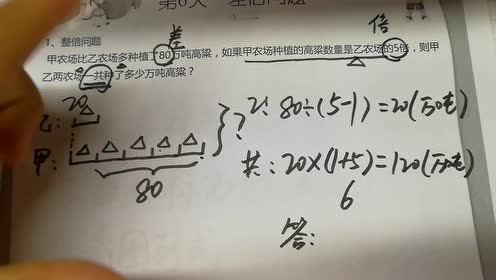 第6天 差倍问题
1、整倍问题
差
倍
甲农场比乙农场多种植了80万吨高粱，如果甲农场种植的高粱数量是乙农场的5倍，则甲
乙两农场一共种了多少万吨高粱？
20
乙：
甲：
80
?
乙：80÷(5-1)=20(万吨)
共：20×(1+5)=120(万吨)
6
答：